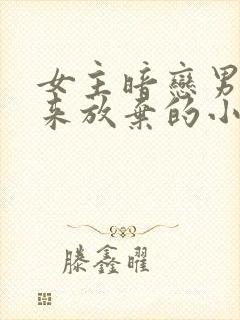 女主暗戀男
来放棄的小
滕鑫曜